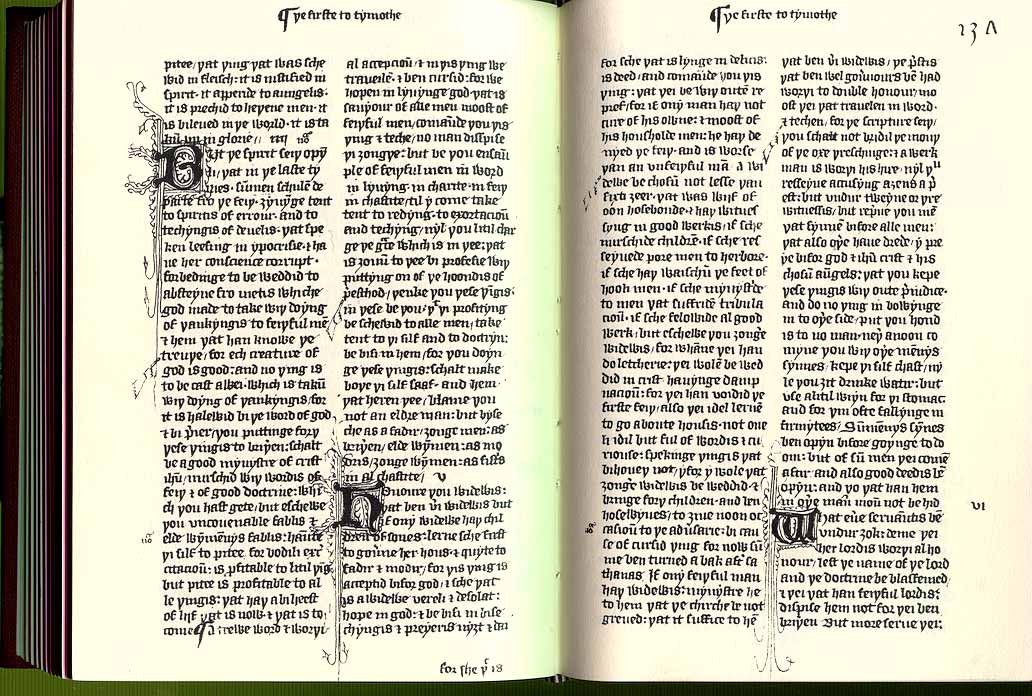 ye firste to tymothe
pitee / yat ying yat was sche
wid in fleisch: it is iustified in
spirit · it apperide to aungelis ·
it is prechid to heyene men · it
is bileued in ye world · it is ta
kun up in glorie /
But ye spirit seiy opy
li / yat in ye laste ty
mes · summen schule de
parte fro ye feiy · zyuynge tent
to spiritis of errour · and to
techyngis of deuelis · yat spe
ken leesing in ypocrisie · & ha
ue her conscience corrupt ·
forbedinge to be weddid to
absteyne fro metis whiche
god made to take wiy doyng
of yankyngis to feiyful men
& hem yat han knowe ye
treuye / for ech creature of
god is good: and no ying is
to be cast awei · which is takun
wiy doyng of yankyngis / for
it is halewid bi ye word of god
& bi preier / you puttinge fory
yese yingis to briyeren: schalt
be a good mynystre of crist
ihu / nurschid wiy wordis of
feiy & of good doctrine: whi
ch you hast gete / but eschewe
you uncouenable fablis &
elde wymmens fablis: haunte
yi silf to pitee · for bodili exer
citacioun: is profitable to litil ying
but pitee is profitable to al
le yingis: yat hay a biheest
of lyf yat is now · & yat is to
come / a trewe word & woryi
al accepcioun / & in yis ying we
traueile · & ben cursid: for we
hopen in lyuynge god · yat is
sauyour of alle men moost of
feiyful men / comaunde you yis
ying · & teche / no man dispise
yi zongye · but be you ensaum
ple of feiyful men in word
in lyuyng · in charite · in feiy
in chastite / til y come take
tent to redyng · to exortacioun
and techyng / nyl you litil char
ge ye grace which is in yee · yat
is zouun to yee bi profesie wiy
puttyng on of ye hoondis of
presthod / yenke you yese yingis ·
in yese be you / yat yi profityng
be schewid to alle men / take
tent to yi silf and to doctryn:
be bisi in hem / for you doyn
ge yese yingis: schalt make
boye yi silf saaf · and hem ·
yat heren yee / blame you
not an eldre man: but byse
che as a fadir / zonge men: as
briyeren / elde wymmen: as mo
dris / zonge wymmen: as sistris
in al chastite / v
Honoure you widewis:
yat ben verri widewis but
if ony widewe hay chil
dren of sones: lerne sche first
to gouerne her hous · & quyte to
fadir & modir / for yis ying is
acceptid bifor god / & sche yat
is a widewe verrei & desolat:
hope in god: & be bisi in bise
chyngis & preyeris nyzt & dai
for she yat is
ye firste to tymothe
for sche yat is lyuynge in delicis:
is deed / and comaunde you yis
ying: yat yei be wiy outen re
preef / for if ony man hay not
cure of his owne: & moost of
his housholde men: he hay de
nyed ye feiy · and is worse
yan an unfeiyful man · A wi
dewe be chosun not lesse yan
sixti zeer · yat was wyf of
oon hosebonde · & hay witnes
syng in good werkis / if sche
nurschide children · if sche res
seyuede pore men to herbore ·
if sche hay waischun ye feet of
hooli men · if sche mynystride
to men yat suffride tribula
cioun · if sche folowide al good
werk / but eschewe you zonge
widewis / for whanne yei han
do letcherie: yei wolen be wed
did in crist · hauynge damp
nacioun: for yei han voidid ye
firste feiy / also yei idel lernen
to go aboute housis · not one
li idil but ful of wordis & cu
riouse: spekinge yingis yat
bihouey not / yerfor y wole yat
zonge widewis be weddid · &
bringe fory children · and ben
hosewyues · to zyue noon oc
casioun to ye aduersarie: bi cau
se of cursid ying · for now summe
me ben turned abak aftir sa
thanas · If ony feiyful man
hay widewis: mynystre he
to hem · yat ye chirche be not
greued: yat it suffice to hem
yat ben verri widewis / ye prestis
yat ben wel gouernours be had
worye to double honour / mo
ost yei yat trauelen in word ·
& techen / for ye scripture seiy /
you schalt not bridil ye mouy
of ye oxe yreschinge: & a werk
man is woryi his hire / nyl you
resseyue accusyng azens a prest ·
est: but vndur tweyne or yre
witnessis / but repreue you men
yat synnen bifore alle men:
yat also oyere haue drede / y prei
ye bifor god & ihu crist & his
chosun aungels: yat you kepe
yese yingis wiy oute preiudice ·
and do no ying in bowynge
in to oyer side / put you hond
is to no man · neyer anoon co
myne you wiy oyere mennys
synnes / kepe yi silf chast / ny
le you zit drinke watir: but
use a litil wiyn for yi stomac ·
and for yin ofte fallynge in
firmytees / Summens synnes
ben opyn bifore goynge to do
om: but of summen yei comen
aftir · and also good deedis ben
opyn: and yo yat han hem
in oyer maner moun not be hid
What euere seruauntis ben
vndur zok: deme yei
her lordis woryi al ho
nour / lest ye name of ye lord
and ye doctrine be blasfemed /
& yei yat han feiyful lordis:
dispise hem not for yei ben
briyeren · But more serue yei:
vi